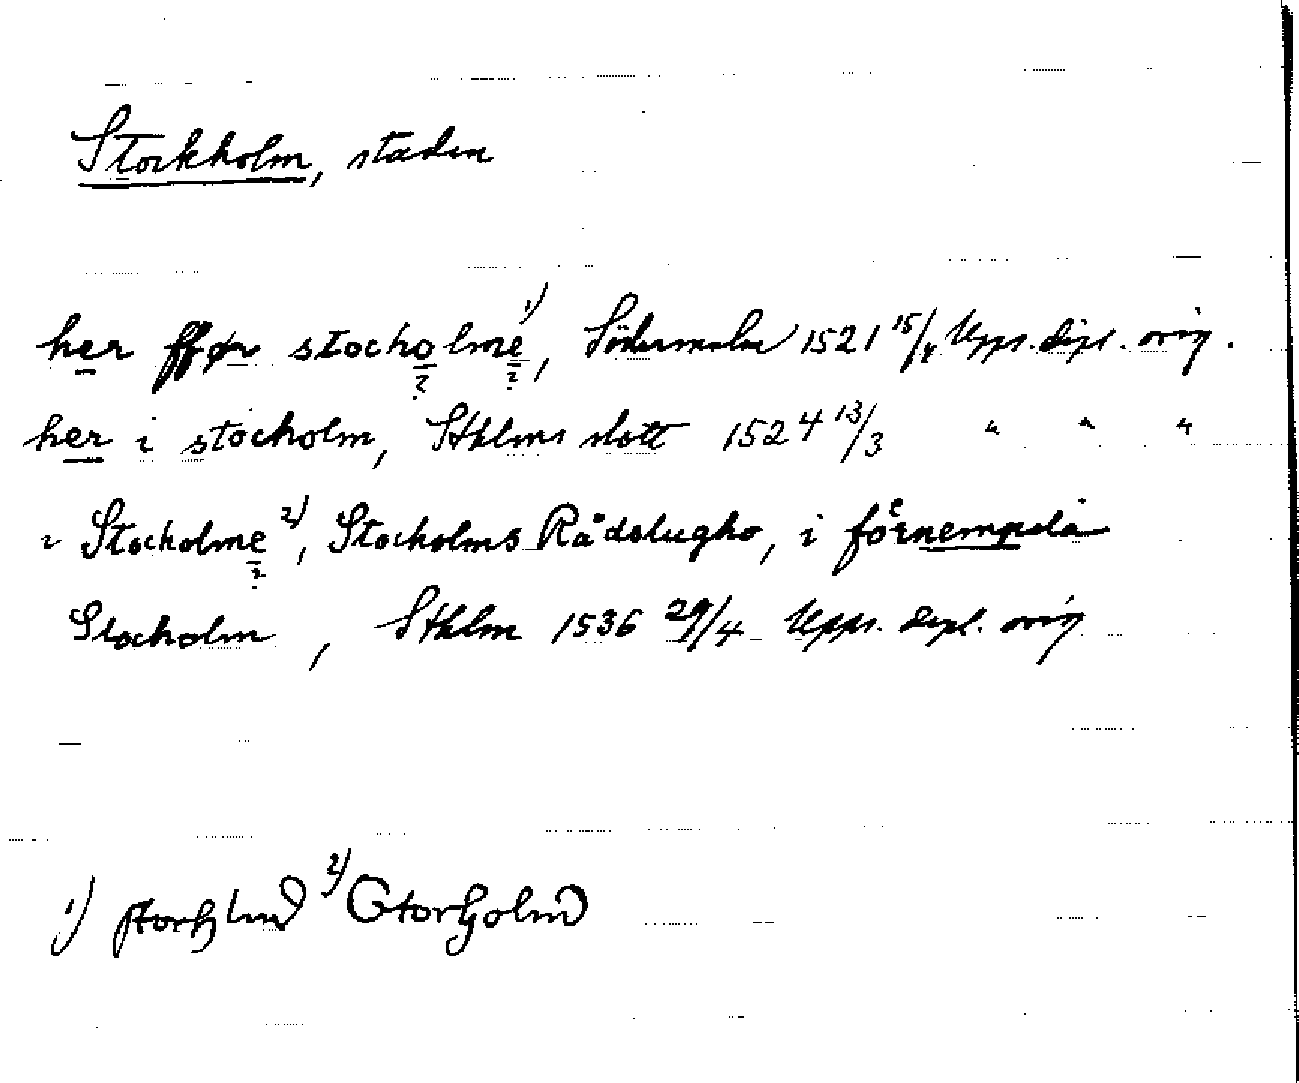 Stockholm, staden
her ffør stocholme 1), Södermalm 1521 15/4 Upps. dipl. orig.
her i stocholm, Sthlms slott 1524 13/3 " " "
i Stocholme 2), Stocholms Rådslugho, i förnempda
Stocholm, Sthlm 1536 29/4 Upps. dipl. orig
1) 2)